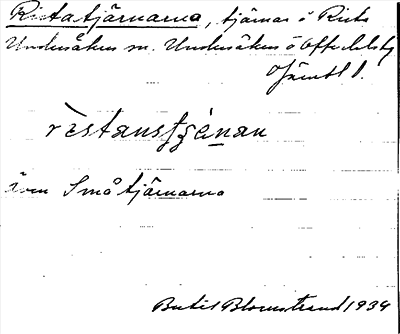 Ristatjärnarna, tjärnar ö Rista
Undersåkers sn. Undersåkers o Offerdals tg
Jämtl l.
rèstanstjǽnan
även Småtjärnarna
Bertil Blomstrand 1934